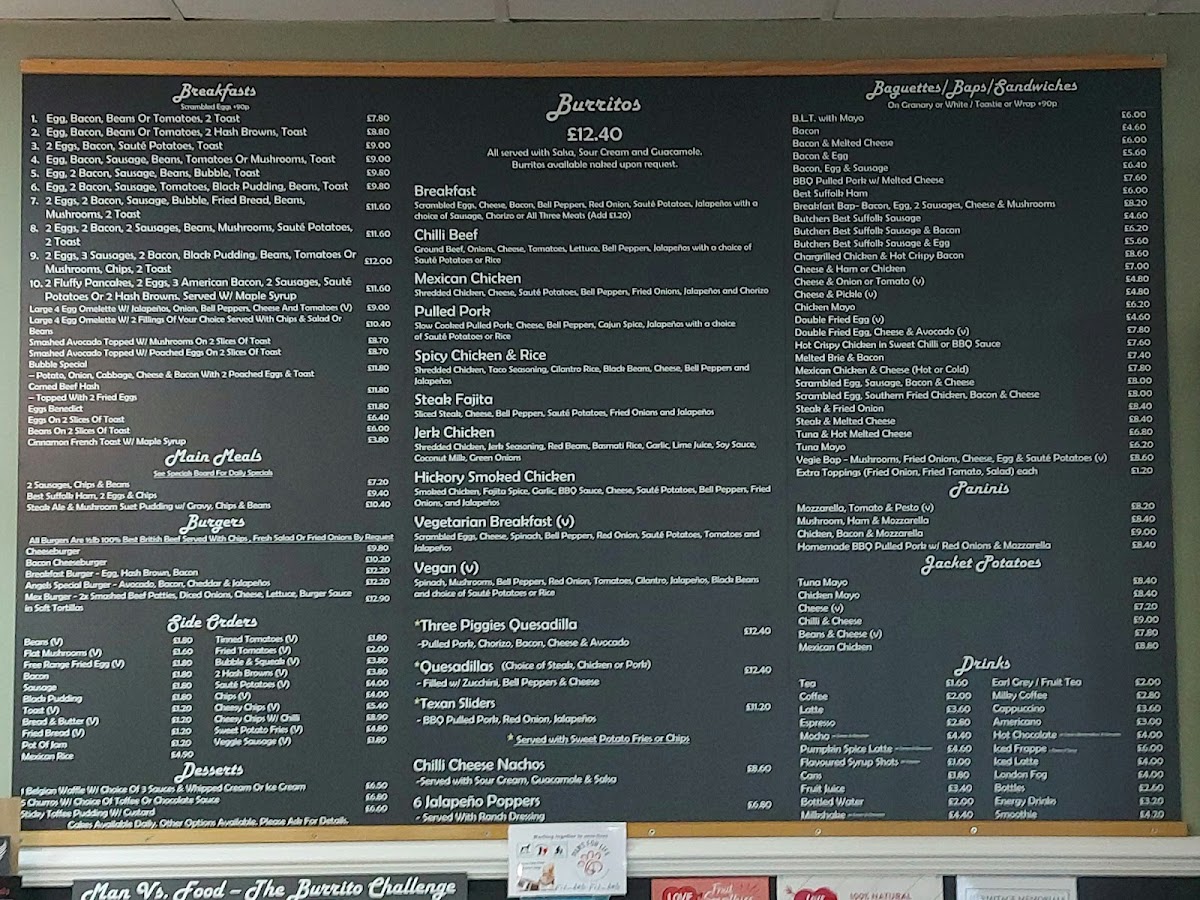 Breakfasts
Scrambled Eggs +90p
1. Egg, Bacon, Beans Or Tomatoes, 2 Toast £7.80
2. Egg, Bacon, Beans Or Tomatoes, 2 Hash Browns, Toast £8.80
3. 2 Eggs, Bacon, Sauté Potatoes, Toast £9.00
4. Egg, Bacon, Sausage, Beans, Tomatoes Or Mushrooms, Toast £9.00
5. Egg, 2 Bacon, Sausage, Beans, Bubble, Toast £9.80
6. Egg, 2 Bacon, Sausage, Tomatoes, Black Pudding, Beans, Toast £9.80
7. 2 Eggs, 2 Bacon, Sausage, Bubble, Fried Bread, Beans,
Mushrooms, 2 Toast £11.60
8. 2 Eggs, 2 Bacon, 2 Sausages, Beans, Mushrooms, Sauté Potatoes,
2 Toast £11.60
9. 2 Eggs, 3 Sausages, 2 Bacon, Black Pudding, Beans, Tomatoes Or
Mushrooms, Chips, 2 Toast £12.00
10. 2 Fluffy Pancakes, 2 Eggs, 3 American Bacon, 2 Sausages, Sauté
Potatoes Or 2 Hash Browns. Served W/ Maple Syrup £11.60
Large 4 Egg Omelette W/ Jalapeños, Onion, Bell Peppers, Cheese And Tomatoes (V) £9.00
Large 4 Egg Omelette W/ 2 Fillings Of Your Choice Served With Chips & Salad Or
Beans £10.40
Smashed Avocado Topped W/ Mushrooms On 2 Slices Of Toast £8.70
Smashed Avocado Topped W/ Poached Eggs On 2 Slices Of Toast £8.70
Bubble Special
– Potato, Onion, Cabbage, Cheese & Bacon With 2 Poached Eggs & Toast £11.80
Corned Beef Hash
– Topped With 2 Fried Eggs £11.80
Eggs Benedict £11.80
Eggs On 2 Slices Of Toast £6.40
Beans On 2 Slices Of Toast £6.00
Cinnamon French Toast W/ Maple Syrup £3.80
Main Meals
See Specials Board For Daily Specials
2 Sausages, Chips & Beans £7.20
Best Suffolk Ham, 2 Eggs & Chips £9.40
Steak Ale & Mushroom Suet Pudding w/ Gravy, Chips & Beans £10.40
Burgers
All Burgers Are ½lb 100% Best British Beef Served With Chips , Fresh Salad Or Fried Onions By Request
Cheeseburger £9.80
Bacon Cheeseburger £10.20
Breakfast Burger - Egg, Hash Brown, Bacon £12.20
Angels Special Burger - Avocado, Bacon, Cheddar & Jalapeños £12.20
Mex Burger - 2x Smashed Beef Patties, Diced Onions, Cheese, Lettuce, Burger Sauce
in Soft Tortillas £12.90
Side Orders
Beans (V) £1.80
Flat Mushrooms (V) £1.60
Free Range Fried Egg (V) £1.80
Bacon £1.80
Sausage £1.80
Black Pudding £1.80
Toast (V) £1.20
Bread & Butter (V) £1.20
Fried Bread (V) £1.20
Pot Of Jam £1.20
Mexican Rice £4.90
Tinned Tomatoes (V) £1.80
Fried Tomatoes (V) £2.00
Bubble & Squeak (V) £3.80
2 Hash Browns (V) £3.80
Sauté Potatoes (V) £4.00
Chips (V) £4.00
Cheesy Chips (V) £5.40
Cheesy Chips W/ Chilli £8.90
Sweet Potato Fries (V) £4.80
Veggie Sausage (V) £1.80
Desserts
1 Belgian Waffle W/ Choice Of 3 Sauces & Whipped Cream Or Ice Cream £6.50
5 Churros W/ Choice Of Toffee Or Chocolate Sauce £6.80
Sticky Toffee Pudding W/ Custard £6.60
Cakes Available Daily. Other Options Available. Please Ask For Details.
Burritos
£12.40
All served with Salsa, Sour Cream and Guacamole.
Burritos available naked upon request.
Breakfast
Scrambled Eggs, Cheese, Bacon, Bell Peppers, Red Onion, Sauté Potatoes, Jalapeños with a
choice of Sausage, Chorizo or All Three Meats (Add £1.20)
Chilli Beef
Ground Beef, Onions, Cheese, Tomatoes, Lettuce, Bell Peppers, Jalapeños with a choice of
Sauté Potatoes or Rice
Mexican Chicken
Shredded Chicken, Cheese, Sauté Potatoes, Bell Peppers, Fried Onions, Jalapeños and Chorizo
Pulled Pork
Slow Cooked Pulled Pork, Cheese, Bell Peppers, Cajun Spice, Jalapeños with a choice
of Sauté Potatoes or Rice
Spicy Chicken & Rice
Shredded Chicken, Taco Seasoning, Cilantro Rice, Black Beans, Cheese, Bell Peppers and
Jalapeños
Steak Fajita
Sliced Steak, Cheese, Bell Peppers, Sauté Potatoes, Fried Onions and Jalapeños
Jerk Chicken
Shredded Chicken, Jerk Seasoning, Red Beans, Basmati Rice, Garlic, Lime Juice, Soy Sauce,
Coconut Milk, Green Onions
Hickory Smoked Chicken
Smoked Chicken, Fajita Spice, Garlic, BBQ Sauce, Cheese, Sauté Potatoes, Bell Peppers, Fried
Onions, and Jalapeños
Vegetarian Breakfast (v)
Scrambled Eggs, Cheese, Spinach, Bell Peppers, Red Onion, Sauté Potatoes, Tomatoes and
Jalapeños
Vegan (v)
Spinach, Mushrooms, Bell Peppers, Red Onion, Tomatoes, Cilantro, Jalapeños, Black Beans
and choice of Sauté Potatoes or Rice
*Three Piggies Quesadilla £12.40
-Pulled Pork, Chorizo, Bacon, Cheese & Avocado
*Quesadillas (Choice of Steak, Chicken or Pork) £12.40
- Filled w/ Zucchini, Bell Peppers & Cheese
*Texan Sliders £11.20
- BBQ Pulled Pork, Red Onion, Jalapeños
* Served with Sweet Potato Fries or Chips
Chilli Cheese Nachos £8.60
-Served with Sour Cream, Guacamole & Salsa
6 Jalapeño Poppers £6.80
- Served With Ranch Dressing
Baguettes/Baps/Sandwiches
On Granary or White / Toastie or Wrap +90p
B.L.T. with Mayo £6.00
Bacon £4.60
Bacon & Melted Cheese £6.00
Bacon & Egg £5.60
Bacon, Egg & Sausage £6.40
BBQ Pulled Pork w/ Melted Cheese £7.60
Best Suffolk Ham £6.00
Breakfast Bap- Bacon, Egg, 2 Sausages, Cheese & Mushrooms £8.20
Butchers Best Suffolk Sausage £4.60
Butchers Best Suffolk Sausage & Bacon £6.20
Butchers Best Suffolk Sausage & Egg £5.60
Chargrilled Chicken & Hot Crispy Bacon £8.60
Cheese & Ham or Chicken £7.00
Cheese & Onion or Tomato (v) £4.80
Cheese & Pickle (v) £4.80
Chicken Mayo £6.20
Double Fried Egg (v) £4.60
Double Fried Egg, Cheese & Avocado (v) £7.80
Hot Crispy Chicken in Sweet Chilli or BBQ Sauce £7.60
Melted Brie & Bacon £7.40
Mexican Chicken & Cheese (Hot or Cold) £7.80
Scrambled Egg, Sausage, Bacon & Cheese £8.00
Scrambled Egg, Southern Fried Chicken, Bacon & Cheese £8.00
Steak & Fried Onion £8.40
Steak & Melted Cheese £8.40
Tuna & Hot Melted Cheese £6.80
Tuna Mayo £6.20
Vegie Bap - Mushrooms, Fried Onions, Cheese, Egg & Sauté Potatoes (v) £8.60
Extra Toppings (Fried Onion, Fried Tomato, Salad) each £1.20
Paninis
Mozzarella, Tomato & Pesto (v) £8.20
Mushroom, Ham & Mozzarella £8.40
Chicken, Bacon & Mozzarella £9.00
Homemade BBQ Pulled Pork w/ Red Onions & Mozzarella £8.40
Jacket Potatoes
Tuna Mayo £8.40
Chicken Mayo £8.40
Cheese (v) £7.20
Chilli & Cheese £9.00
Beans & Cheese (v) £7.80
Mexican Chicken £8.80
Drinks
Tea £1.60
Coffee £2.00
Latte £3.60
Espresso £2.80
Mocha £4.40
Pumpkin Spice Latte £4.60
Flavoured Syrup Shots £1.00
Cans £1.80
Fruit Juice £3.40
Bottled Water £2.00
Milkshake £4.40
Earl Grey / Fruit Tea £2.00
Milky Coffee £2.80
Cappuccino £3.60
Americano £3.00
Hot Chocolate £4.00
Iced Frappe £6.00
Iced Latte £4.00
London Fog £4.00
Bottles £2.60
Energy Drinks £3.20
Smoothie £4.20
Man Vs. Food – The Burrito Challenge
PAWS FOR LIFE
LOVE
Fruit
100% NATURAL
VINTAGE MEMORIALS